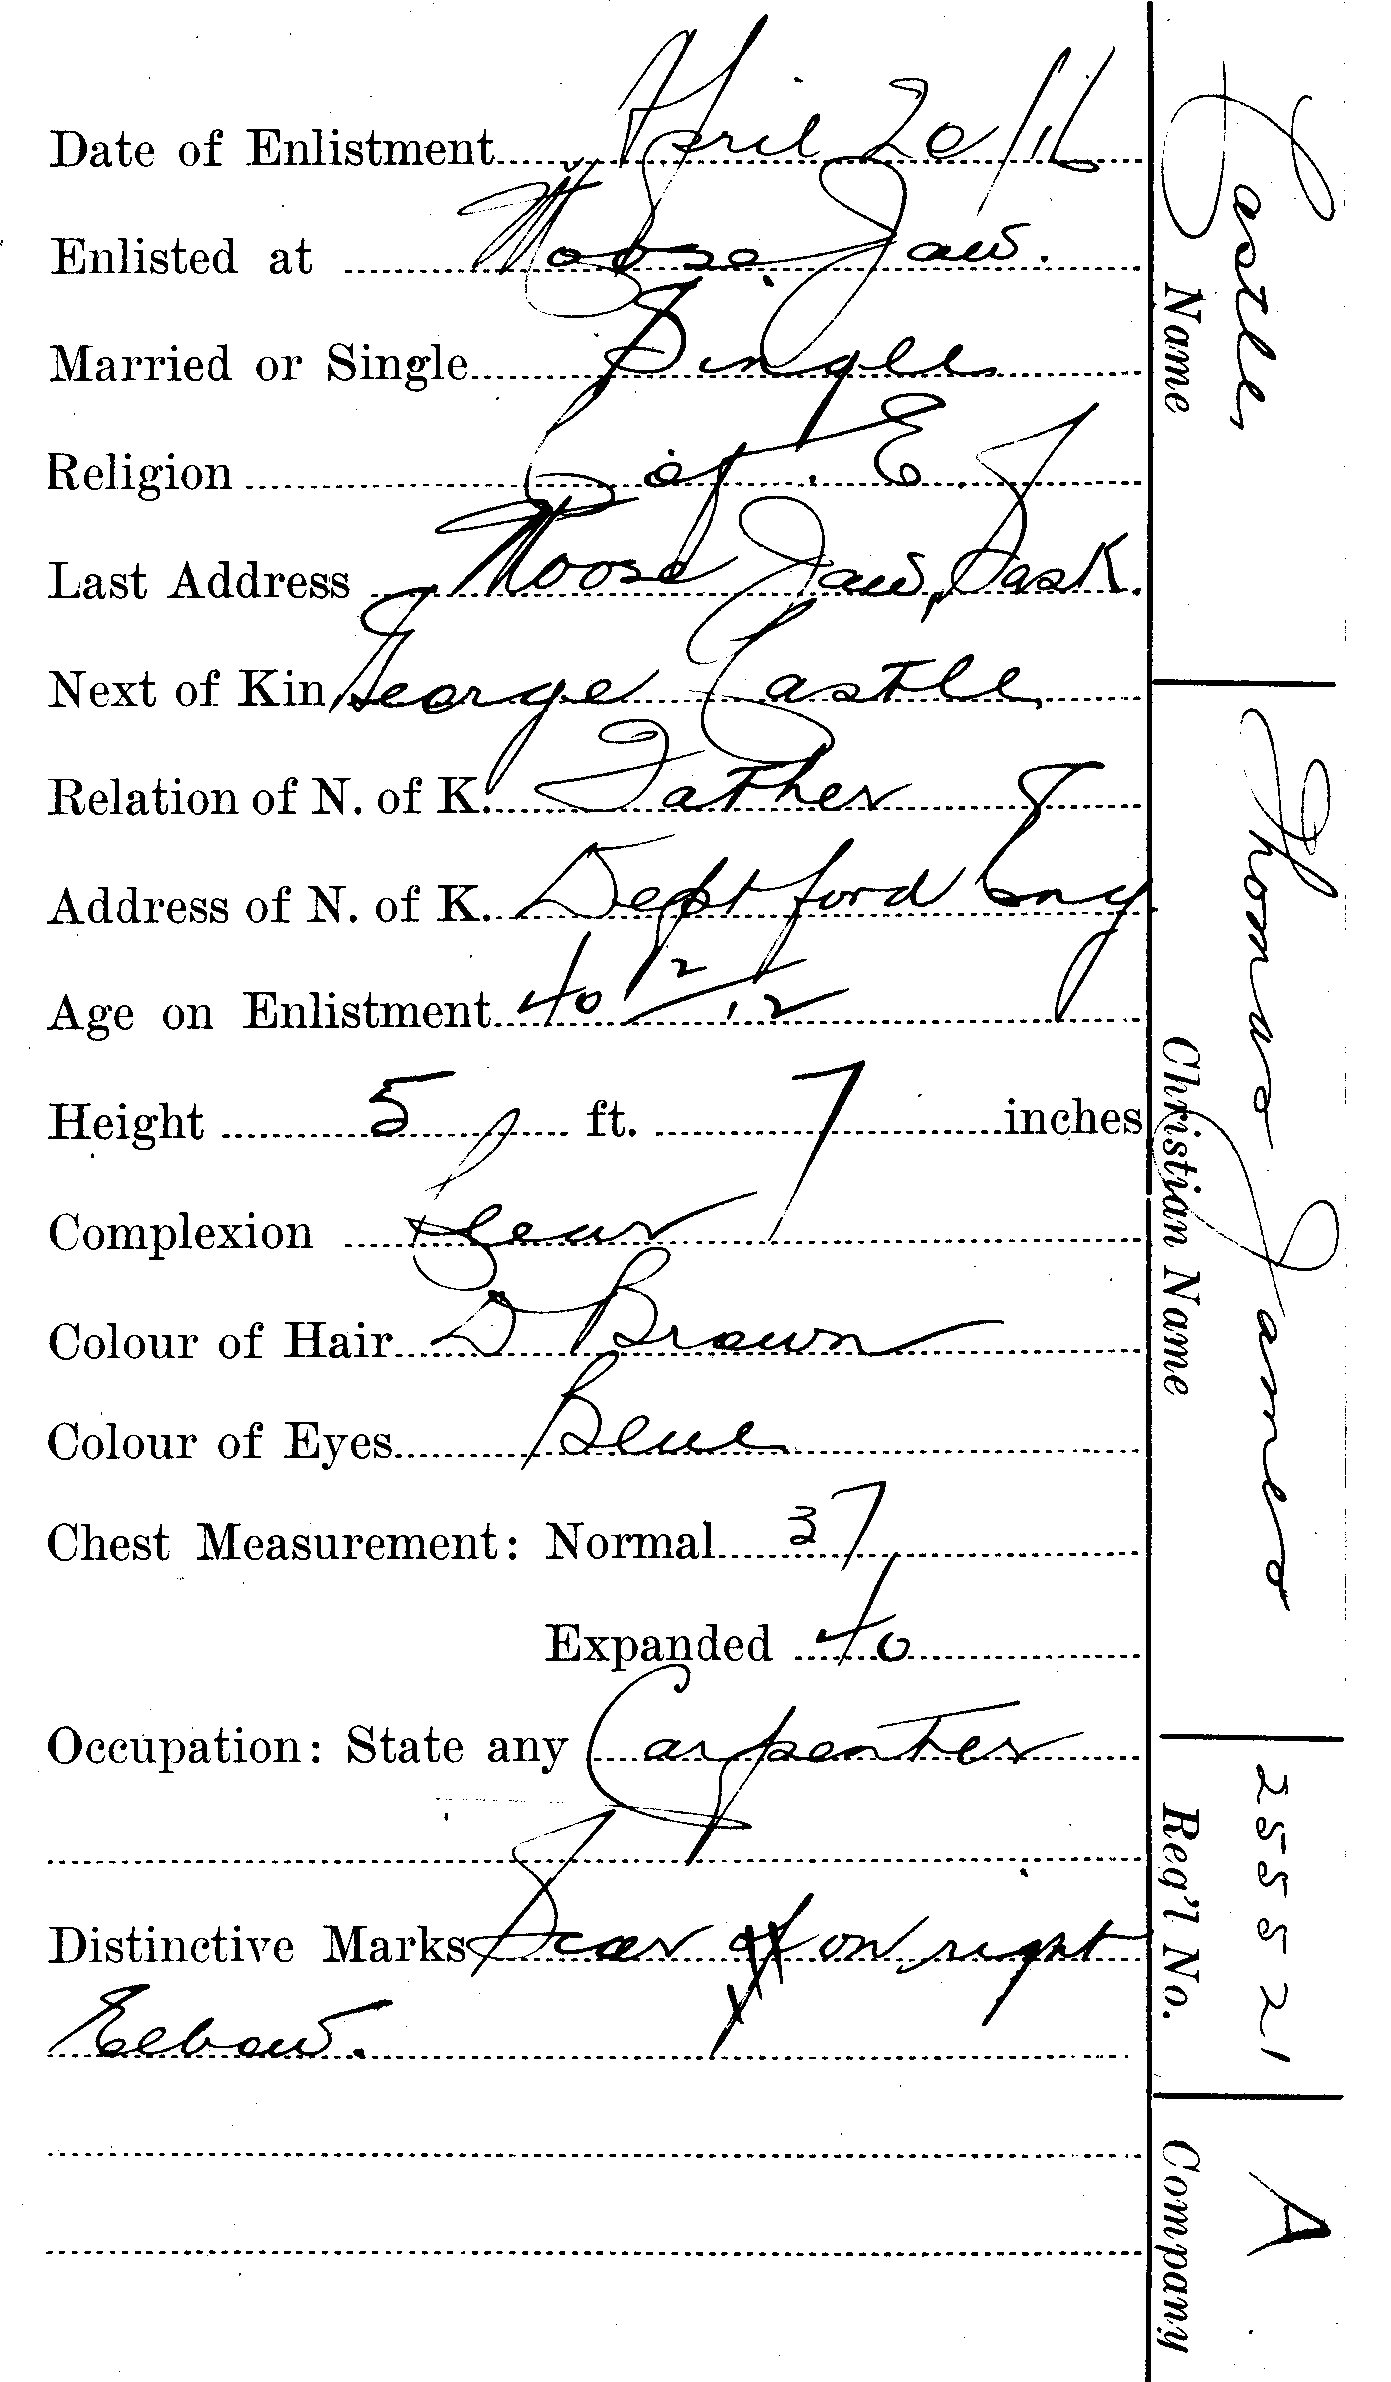 Date of Enlistment April 20/16
Enlisted at Moose Jaw.
Married or Single Single
Religion C of. E.
Last Address Moose Jaw, Sask.
Next of Kin George Castle
Relation of N. of K. Father
Address of N. of K. Deptford Eng
Age on Enlistment 40 2/12
Height 5 ft. 7 inches
Complexion
Colour of Hair D Brown
Colour of Eyes Blue
Chest Measurement: Normal 37
Expanded 40
Occupation: State any Carpenter
Distinctive Marks Scar on right
Elbow.
Castle
Name
Thomas James
Christian Name
255521
Reg'l No.
A
Company